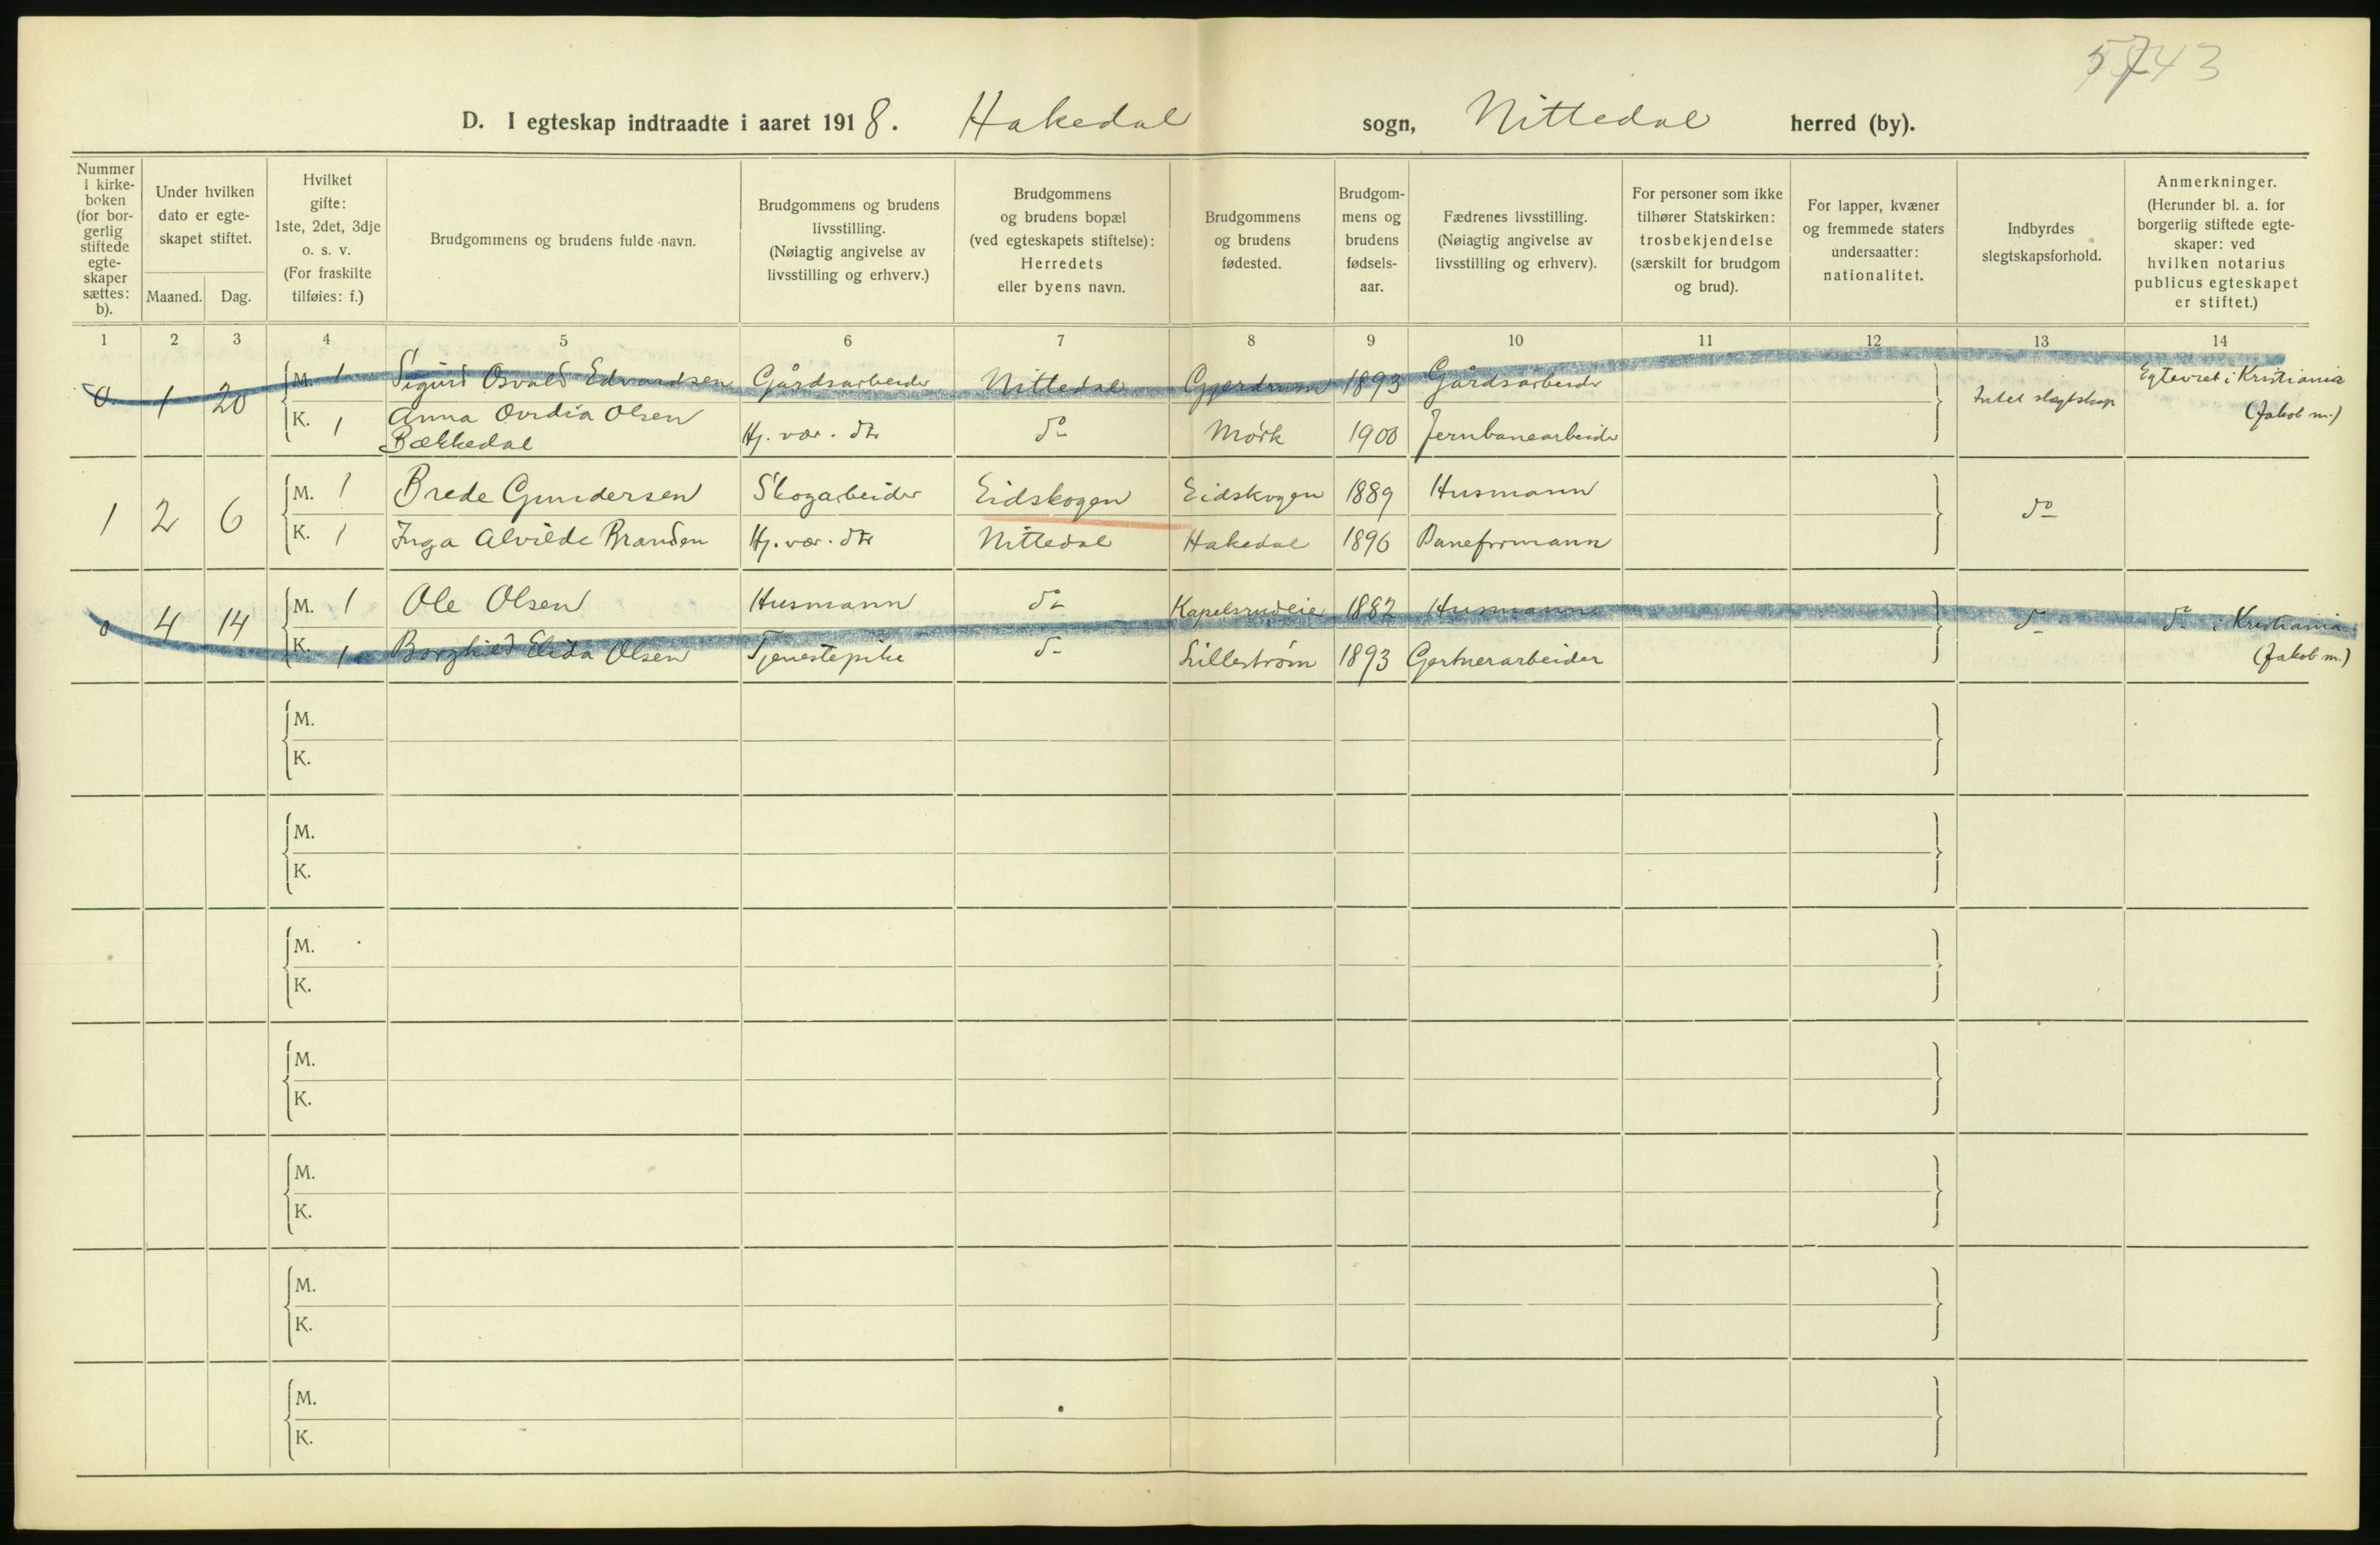 5743
D. I egteskap indtraadte i aaret 1918. Hakedal sogn, Nittedal herred (by).
Nummer i kirke-boken (for bor-gerlig stiftede egte-skaper sættes: b).
Under hvilken dato er egte-skapet stiftet.
Maaned. Dag.
Hvilket gifte: 1ste, 2det, 3dje o. s. v. (For fraskilte tilføies: f.)
Brudgommens og brudens fulde navn.
Brudgommens og brudens livsstilling. (Nøiagtig angivelse av livsstilling og erhverv.)
Brudgommens og brudens bopæl (ved egteskapets stiftelse): Herredets eller byens navn.
Brudgommens og brudens fødested.
Brudgom-mens og brudens fødsels-aar.
Fædrenes livsstilling. (Nøiagtig angivelse av livsstilling og erhverv).
For personer som ikke tilhører Statskirken: trosbekjendelse (særskilt for brudgom og brud).
For lapper, kvæner og fremmede staters undersaatter: nationalitet.
Indbyrdes slegtskapsforhold.
Anmerkninger. (Herunder bl. a. for borgerlig stiftede egte-skaper: ved hvilken notarius publicus egteskapet er stiftet.)
1 2 3 4 5 6 7 8 9 10 11 12 13 14
0 1 20 M. 1 Sigurd Osvald Edvardsen Gårdsarbeider Nittedal Gjerdrum 1893 Gårdsarbeider Intet slegtskap Egteviet i Kristiania
K. 1 Anna Ovidia Olsen (Jakob m.)
Bækkedal Hj. vær. dtr do Mørk 1900 Jernbanearbeider
1 2 6 M. 1 Brede Gundersen Skogarbeider Eidskogen Eidskogen 1889 Husmann do
K. 1 Inga Alvilde Branden Hj. vær. dtr Nittedal Hakedal 1896 Baneformann
0 4 14 M. 1 Ole Olsen Husmann do Kapelsrudeie 1882 Husmann do do i Kristiania
K. 1 Borghild Elida Olsen Tjenestepike do Lillestrøm 1893 Gartnerarbeider (Jakob m.)
M.
K.
M.
K.
M.
K.
M.
K.
M.
K.
M.
K.
M.
K.